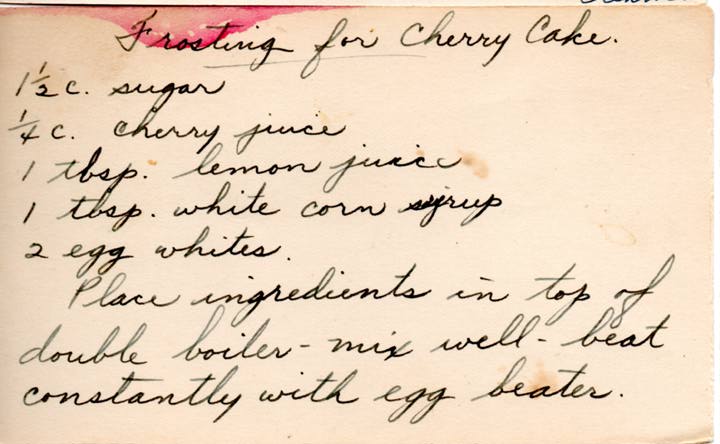 Frosting for Cherry Cake.
1½ c. sugar
¼ c. cherry juice
1 tbsp. lemon juice
1 tbsp. white corn syrup
2 egg whites.
Place ingredients in top of
double boiler - mix well - beat
constantly with egg beater.